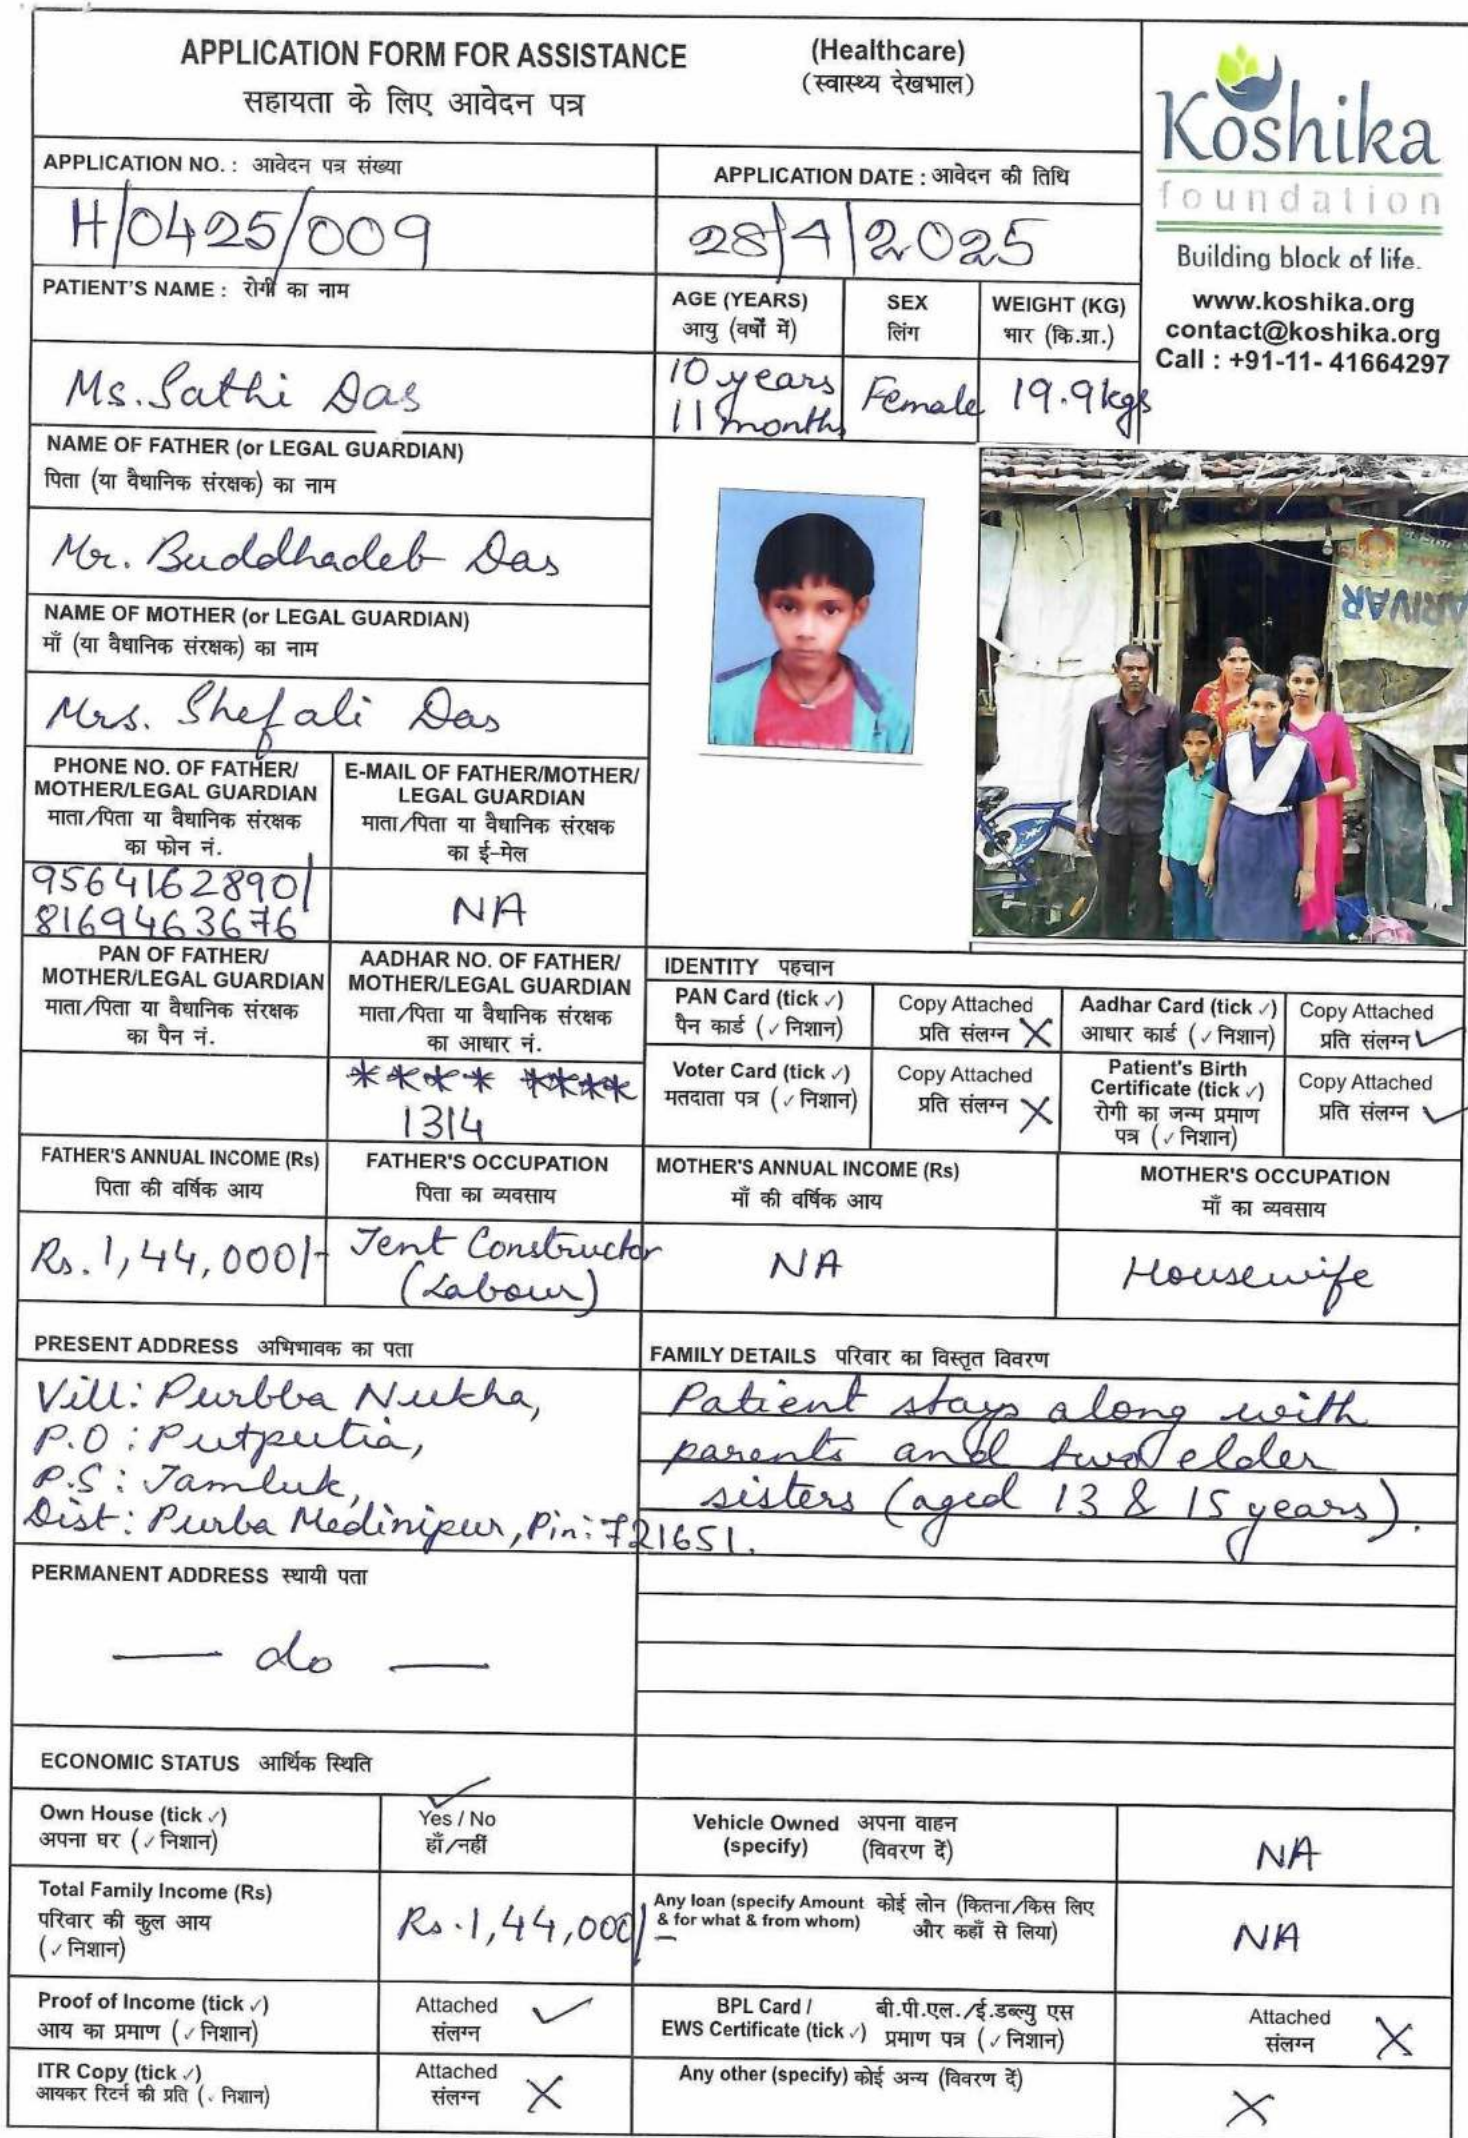 APPLICATION FORM FOR ASSISTANCE (Healthcare)
सहायता के लिए आवेदन पत्र (स्वास्थ्य देखभाल)
Koshika
foundation
Building block of life.
www.koshika.org
contact@koshika.org
Call : +91-11- 41664297
APPLICATION NO. : आवेदन पत्र संख्या
APPLICATION DATE : आवेदन की तिथि
H/0425/009
28/4/2025
PATIENT'S NAME : रोगी का नाम
AGE (YEARS)
आयु (वर्षों में)
SEX
लिंग
WEIGHT (KG)
भार (कि.ग्रा.)
Ms. Sathi Das
10 years
11 months
Female
19.9 kgs
NAME OF FATHER (or LEGAL GUARDIAN)
पिता (या वैधानिक संरक्षक) का नाम
Mr. Buddhadeb Das
NAME OF MOTHER (or LEGAL GUARDIAN)
माँ (या वैधानिक संरक्षक) का नाम
Mrs. Shefali Das
ARIVAR
PHONE NO. OF FATHER/
MOTHER/LEGAL GUARDIAN
माता/पिता या वैधानिक संरक्षक
का फोन नं.
E-MAIL OF FATHER/MOTHER/
LEGAL GUARDIAN
माता/पिता या वैधानिक संरक्षक
का ई-मेल
9564162890/
8169463676
NA
PAN OF FATHER/
MOTHER/LEGAL GUARDIAN
माता/पिता या वैधानिक संरक्षक
का पैन नं.
AADHAR NO. OF FATHER/
MOTHER/LEGAL GUARDIAN
माता/पिता या वैधानिक संरक्षक
का आधार नं.
**** ****
1314
IDENTITY पहचान
PAN Card (tick ✓)
पैन कार्ड (✓ निशान)
Copy Attached
प्रति संलग्न X
Aadhar Card (tick ✓)
आधार कार्ड (✓ निशान)
Copy Attached
प्रति संलग्न ✓
Voter Card (tick ✓)
मतदाता पत्र (✓ निशान)
Copy Attached
प्रति संलग्न X
Patient's Birth
Certificate (tick ✓)
रोगी का जन्म प्रमाण
पत्र (✓ निशान)
Copy Attached
प्रति संलग्न ✓
FATHER'S ANNUAL INCOME (Rs)
पिता की वर्षिक आय
FATHER'S OCCUPATION
पिता का व्यवसाय
MOTHER'S ANNUAL INCOME (Rs)
माँ की वर्षिक आय
MOTHER'S OCCUPATION
माँ का व्यवसाय
Rs. 1,44,000/-
Tent Constructor
(Labour)
NA
Housewife
PRESENT ADDRESS अभिभावक का पता
Vill: Purbba Nukha,
P.O : Putputia,
P.S : Tamluk,
Dist: Purba Medinipur, Pin: 721651.
FAMILY DETAILS परिवार का विस्तृत विवरण
Patient stays along with
parents and two elder
sisters (aged 13 & 15 years).
PERMANENT ADDRESS स्थायी पता
— do —
ECONOMIC STATUS आर्थिक स्थिति
Own House (tick ✓)
अपना घर (✓ निशान)
✓
Yes / No
हाँ/नहीं
Vehicle Owned अपना वाहन
(specify) (विवरण दें)
NA
Total Family Income (Rs)
परिवार की कुल आय
(✓ निशान)
Rs. 1,44,000/-
Any loan (specify Amount कोई लोन (कितना/किस लिए
& for what & from whom) और कहाँ से लिया)
NA
Proof of Income (tick ✓)
आय का प्रमाण (✓ निशान)
Attached
संलग्न ✓
BPL Card / बी.पी.एल./ई.डब्ल्यु एस
EWS Certificate (tick ✓) प्रमाण पत्र (✓ निशान)
Attached
संलग्न X
ITR Copy (tick ✓)
आयकर रिटर्न की प्रति (✓ निशान)
Attached
संलग्न X
Any other (specify) कोई अन्य (विवरण दें)
X